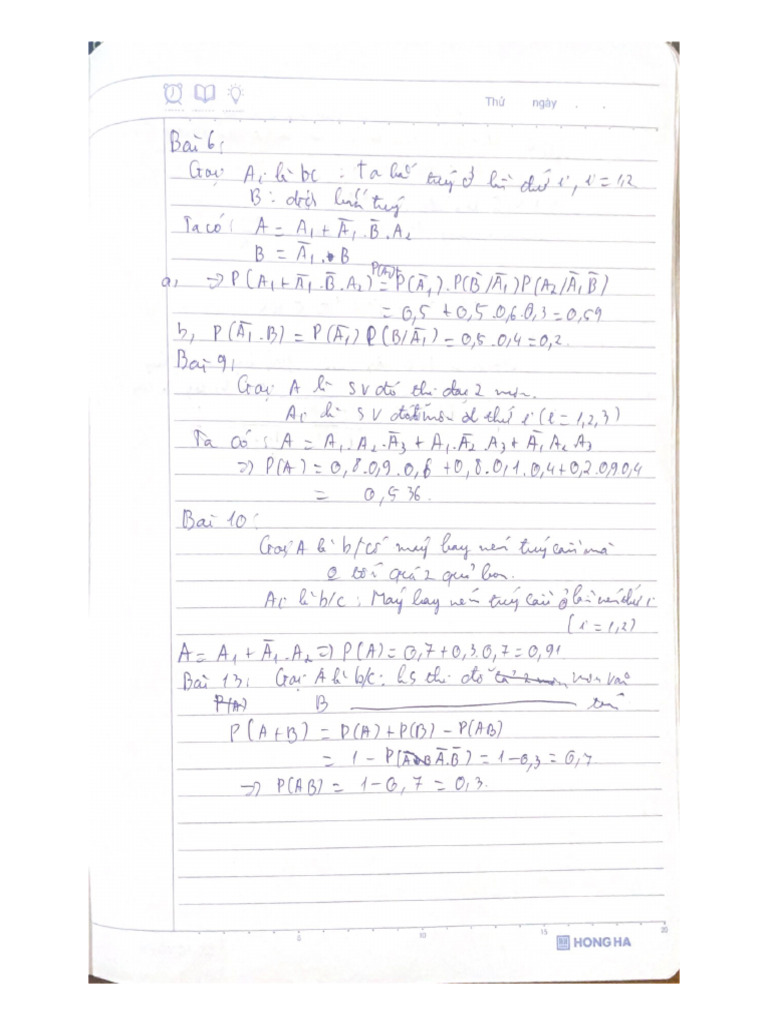 Thứ ngày . .
Bài 6:
Gọi A₁ là bc : ta bắn trúng ở lần thứ i, i = 1,2
B : địch bắn trúng
Ta có: A = A₁ + Ā₁.B̄.A₂
B = Ā₁.B
a, => P(A₁ + Ā₁.B̄.A₂) = P(A₁)+ P(Ā₁).P(B̄/Ā₁)P(A₂/Ā₁B̄)
= 0,5 + 0,5.0,6.0,3 = 0,59
b, P(Ā₁.B) = P(Ā₁) P(B/Ā₁) = 0,5.0,4 = 0,2.
Bài 9:
Gọi A là SV đó thi đạt 2 môn.
Ai là SV đạt môn thứ i (i = 1,2,3)
Ta có: A = A₁.A₂.Ā₃ + A₁.Ā₂.A₃ + Ā₁A₂A₃
=> P(A) = 0,8.0,9.0,6 + 0,8.0,1.0,4 + 0,2.0,90,4
= 0,536.
Bài 10:
Gọi A là b/c máy bay ném trúng cầu mà
quá 2 quả bom.
Ai là b/c : Máy bay ném trúng cầu ở lần ném thứ i
(i = 1,2)
A = A₁ + Ā₁.A₂ => P(A) = 0,7 + 0,3.0,7 = 0,91
Bài 13: Gọi A là b/c : hs thi đỗ môn văn
P(A) B
P(A+B) = P(A) + P(B) - P(AB)
= 1 - P(Ā.B̄) = 1 - 0,3 = 0,7
=> P(AB) = 1 - 0,7 = 0,3.
5 10 15 20
HONG HA